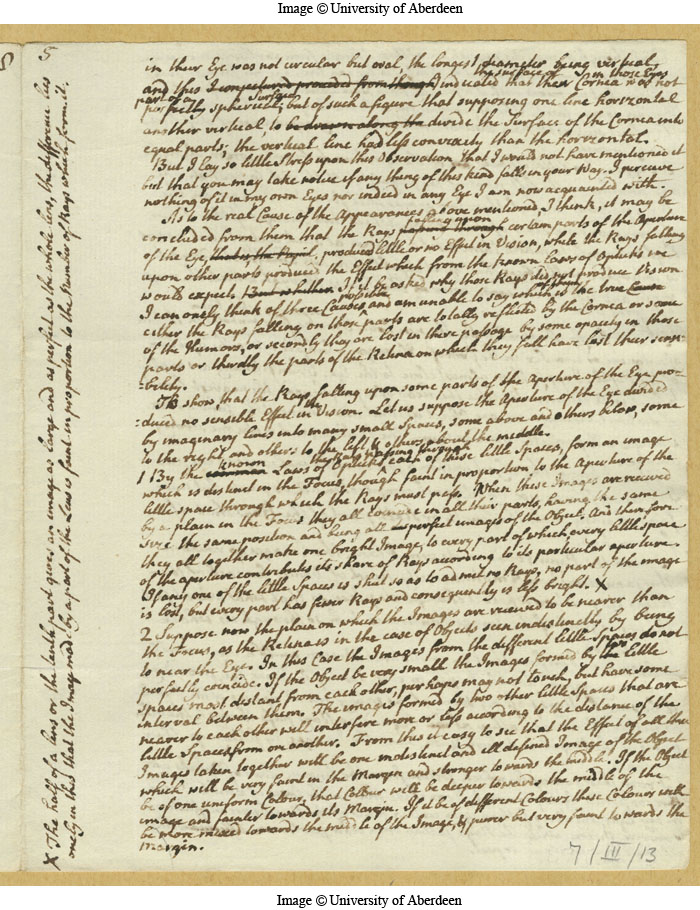 Image © University of Aberdeen
5
in their Eye was not circular but oval, the longest diameter being vertical,
and this I conjectured proceeded from though indicated that the surface of their Cornea in those Eyes was not
part of a perfectly spherical Surface; but of such a figure that supposing one line horizontal
another vertical, to be drawn along the divide the Surface of the Cornea into
equal parts; the vertical line had less convexity than the horizontal.
But I lay so little stress upon this Observation that I would not have mentioned it
but that you may take notice if any thing of this kind falls in your Way. I perceive
nothing of it in my own Eyes nor indeed in any Eye I am now acquainted with.
As to the real Cause of the Appearances above mentioned, I think, it may be
concluded from them that the Rays falling upon certain parts of the Aperture
of the Eye, produced little or no Effect in Vision, while the Rays falling
upon other parts produced the Effect which from the known Laws of Opticks we
would expect. But whether If it be asked why those Rays did not produce Vision
I can onely think of three possible Causes, and am unable to say which is the true Cause
either the Rays falling on those parts are totally reflected by the Cornea or some
of the Humors, or secondly they are lost in there passage by some opacity in those
parts or thirdly the parts of the Retina on which they fall have lost their sensi-
-bility.
To show, that the Rays falling upon some parts of the Aperture of the Eye pro-
-duced no sensible Effect in the Vision. Let us suppose the Aperture of the Eye divided
by imaginary lines into many small Spaces, some above and others below, some
to the right, and others to the left & others about the middle.
1 By the common known Laws of Opticks the Rays passing through each of these little Spaces, form an image
which is distinct in the Focus, though faint in proportion to the Aperture of the
little space through which the Rays must pass. When these Images are received
by a plain in the Focus they all coincide in all their parts, having the same
the same position and being all perfect images of the Object. And therefore
they all together make one bright Image, to every part of which every little space
of the aperture contributes its share of Rays according to its particular aperture.
If any one of the little Spaces is shut so as to admit no Rays, no part of the image
is lost, but every part has fewer Rays and consequently is less bright. X
2 Suppose now the plain on which the Images are received to be nearer than
the Focus, as the Retina is in the case of Objects seen indistinctly by being
to near the Eye. In this Case the Images from the different little Spaces do not
perfectly coincide. If the Object be very small the Images formed by the two little
Spaces most distant from each other, perhaps may not touch, but have some
interval between them. The images formed by two other little Spaces that are
nearer to each other will interfere more or less according to the distance of the
little Spaces from on another. From this it easy to see that the Effect of all the
Images taken together will be one indistinct and ill defined Image of the Object
which will be very faint in the Margin and stronger towards the middle. If the Object
be of one uniform Colour, that Colour will be deeper towards the middle of the
image and fainter towards its Margin. If it be of different Colours these Colours will
be more mixed towards the middle of the Image, & purer but very faint towards the
Margin.
X The half of a lens or the tenth part gives an image as large and as perfect as the whole lens, the difference lies
onely in this that the Image made by a part of the Lens is faint in proportion to the Number of Rays which form it.
7/III/13
Image © University of Aberdeen